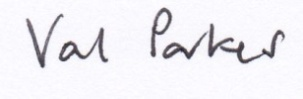 Val Parker